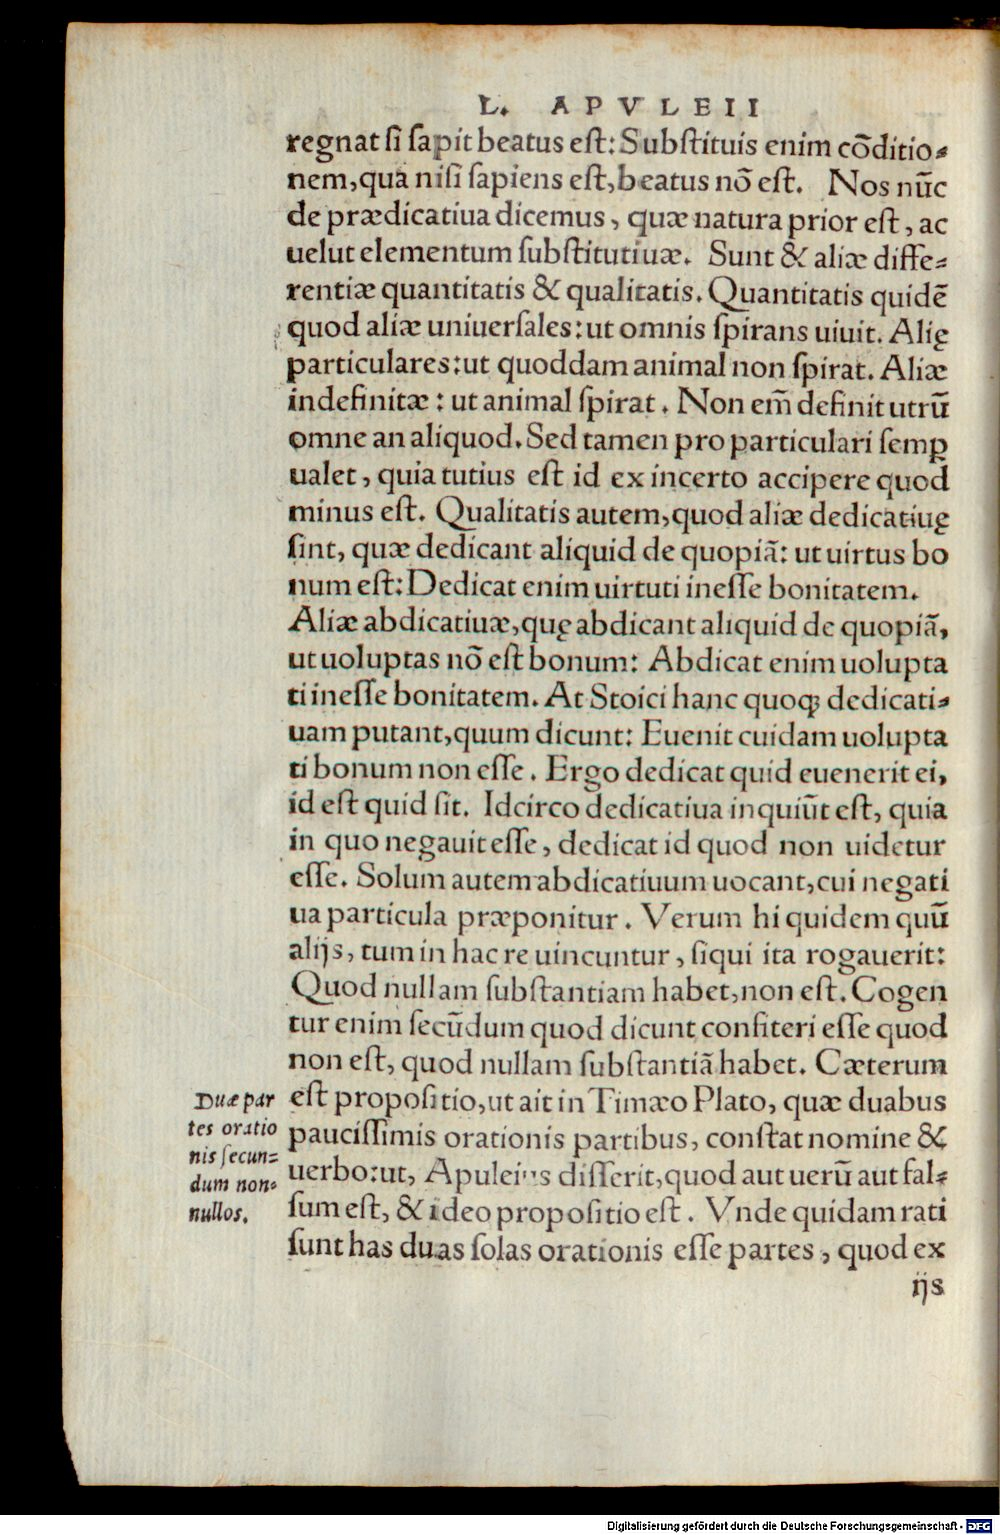 L. APVLEII
regnat ſi ſapit beatus eſt: Subſtituis enim cōditio-
nem, qua niſi ſapiens eſt, beatus nō eſt. Nos nūc
de prædicatiua dicemus, quæ natura prior eſt, ac
uelut elementum ſubſtitutiuæ. Sunt & aliæ diffe-
rentiæ quantitatis & qualitatis. Quantitatis quidē
quod aliæ uniuerſales: ut omnis ſpirans uiuit. Alię
particulares: ut quoddam animal non ſpirat. Aliæ
indefinitæ: ut animal ſpirat. Non em̄ definit utrū
omne an aliquod. Sed tamen pro particulari ſemp̱
ualet, quia tutius eſt id ex incerto accipere quod
minus eſt. Qualitatis autem, quod aliæ dedicatiuę
ſint, quæ dedicant aliquid de quopiā: ut uirtus bo
num eſt: Dedicat enim uirtuti ineſſe bonitatem.
Aliæ abdicatiuæ, quę abdicant aliquid de quopiā,
ut uoluptas nō eſt bonum: Abdicat enim uolupta
ti ineſſe bonitatem. At Stoici hanc quoqꝫ dedicati-
uam putant, quum dicunt: Euenit cuidam uolupta
ti bonum non eſſe. Ergo dedicat quid euenerit ei,
id eſt quid ſit. Idcirco dedicatiua inquiūt eſt, quia
in quo negauit eſſe, dedicat id quod non uidetur
eſſe. Solum autem abdicatiuum uocant, cui negati
ua particula præponitur. Verum hi quidem quū
alijs, tum in hac re uincuntur, ſiqui ita rogauerit:
Quod nullam ſubſtantiam habet, non eſt. Cogen
tur enim ſecūdum quod dicunt confiteri eſſe quod
non eſt, quod nullam ſubſtantiā habet. Cæterum
eſt propoſitio, ut ait in Timæo Plato, quæ duabus
pauciſſimis orationis partibus, conſtat nomine &
uerbo: ut, Apuleius diſſerit, quod aut uerū aut fal-
ſum eſt, & ideo propoſitio eſt. Vnde quidam rati
ſunt has duas ſolas orationis eſſe partes, quod ex
ijs
Duæ par
tes oratio
nis ſecun-
dum non-
nullos.
Digitalisierung gefördert durch die Deutsche Forschungsgemeinschaft - DFG